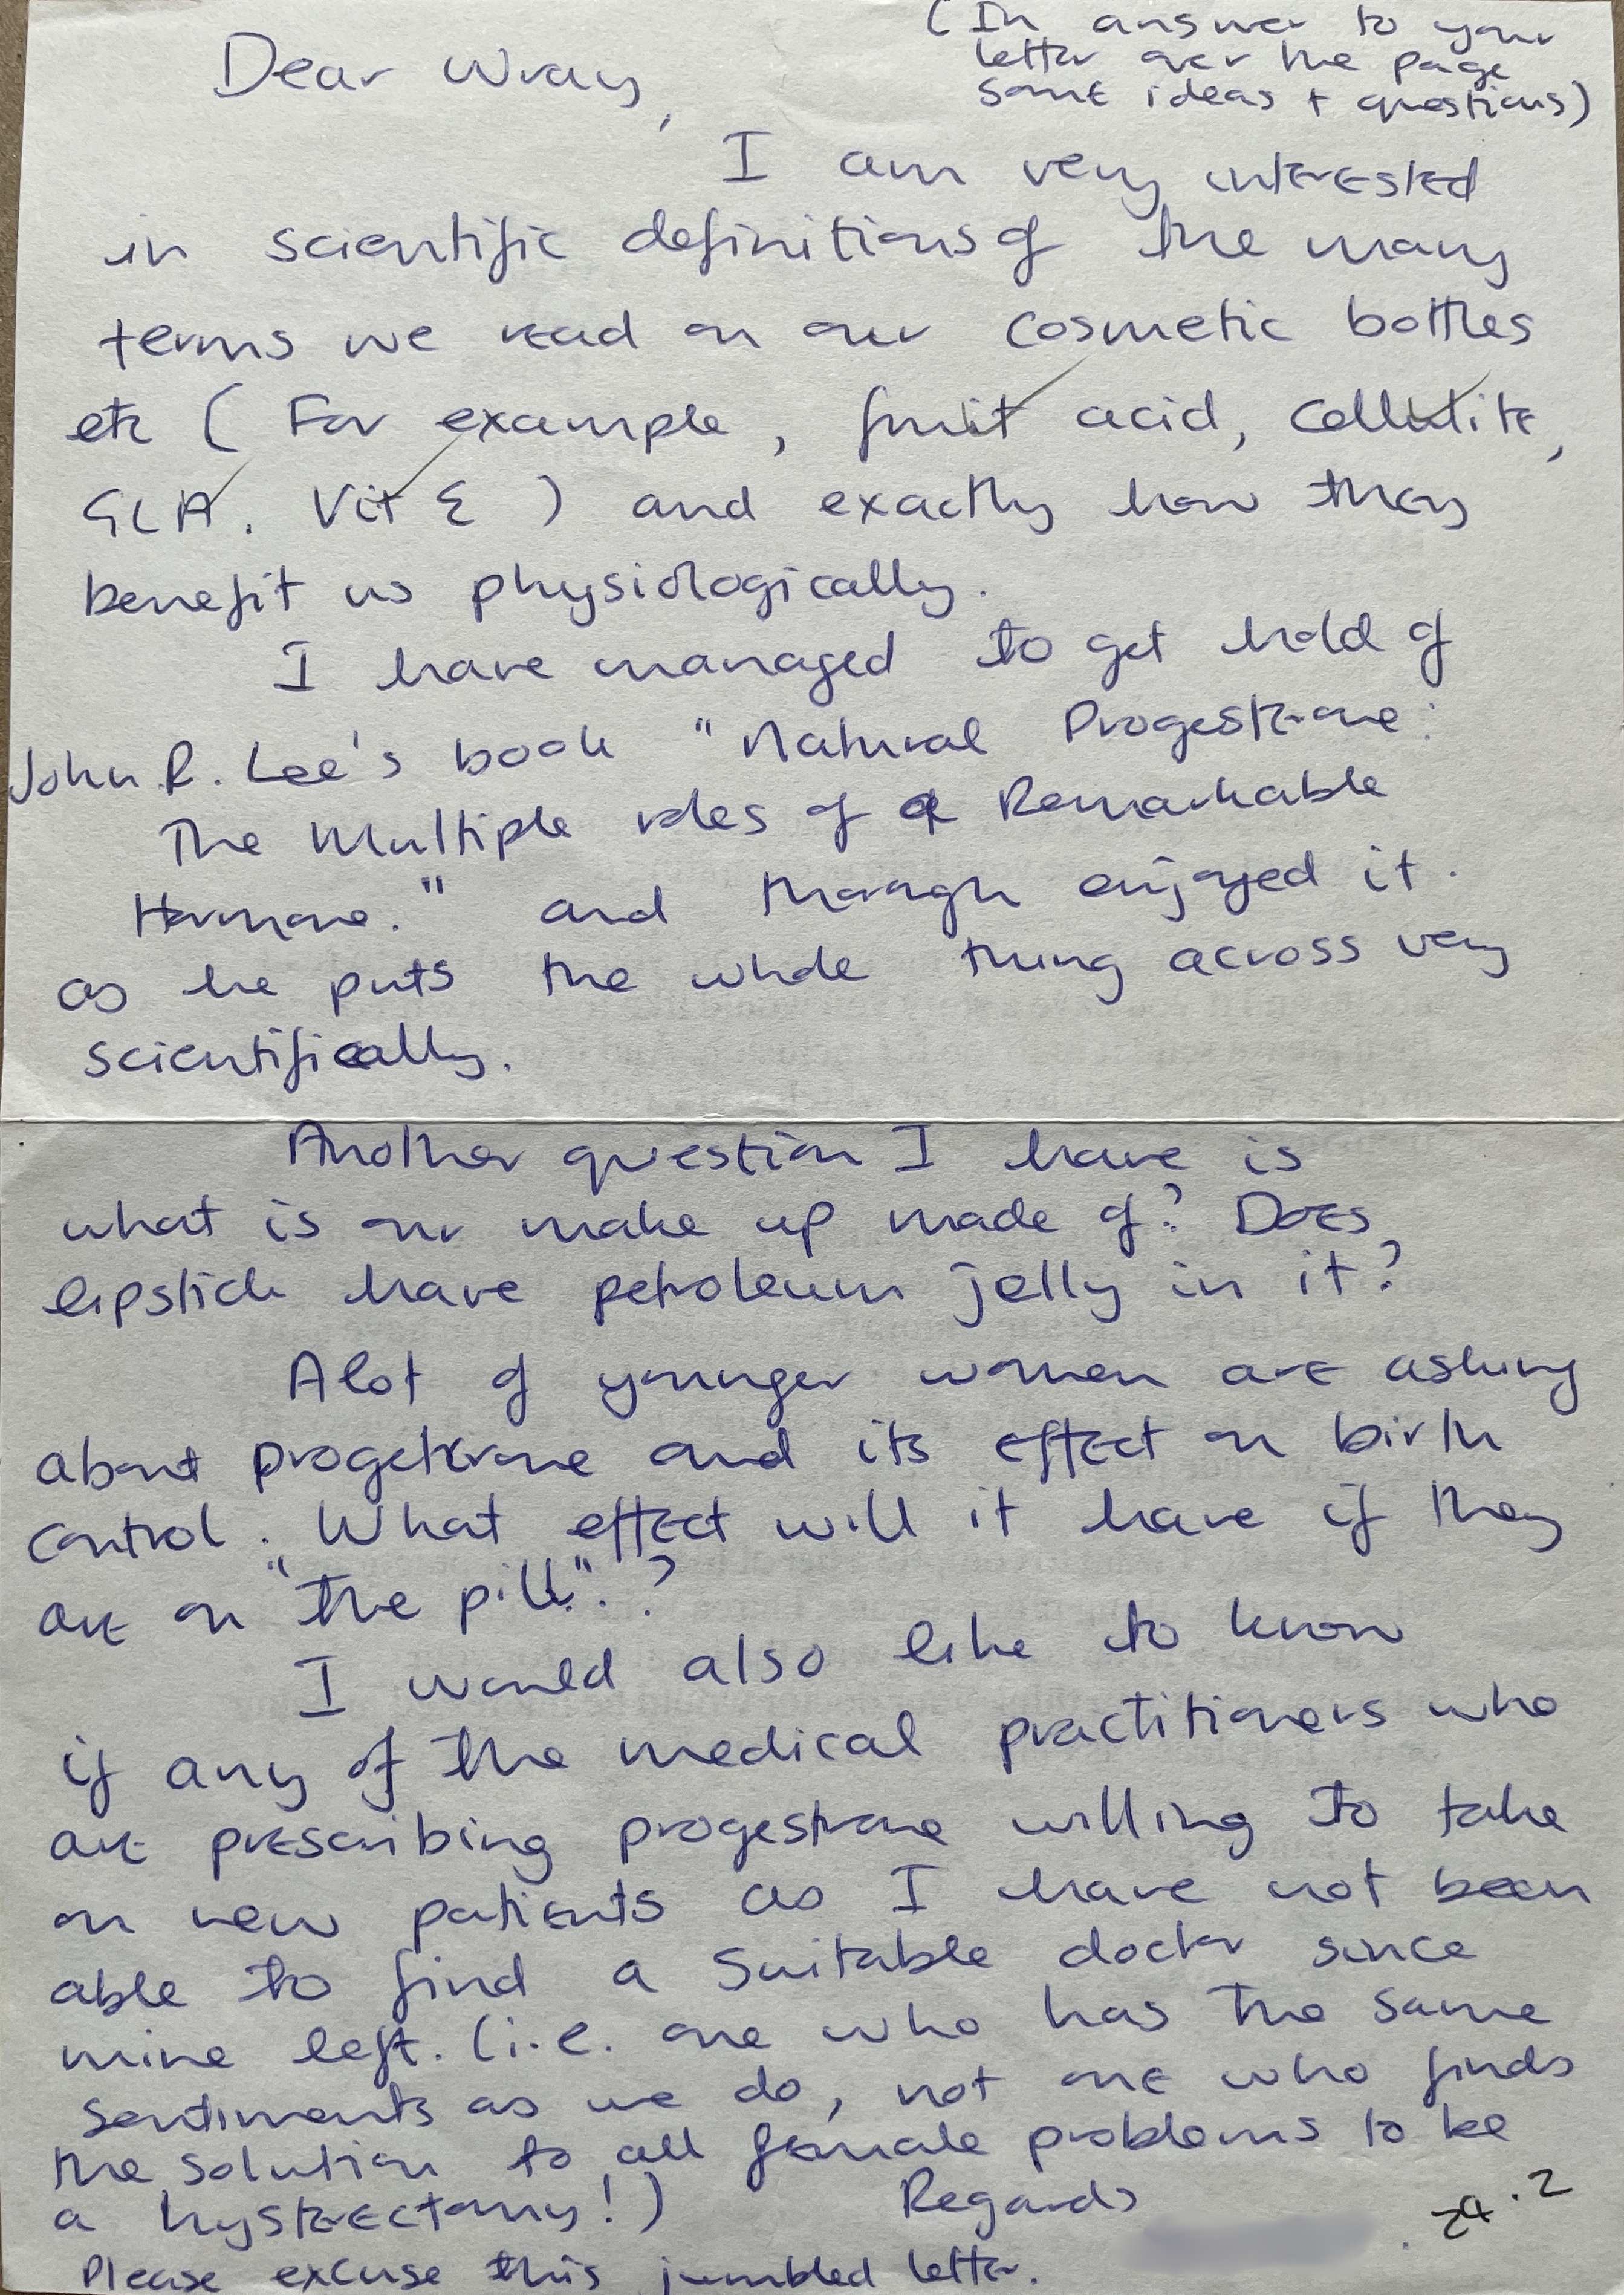 (In answer to your
letter over the page
some ideas + questions)
Dear Wray,
I am very interested
in scientific definitions of the many
terms we read on our cosmetic bottles
etc (For example, fruit acid, cellulite,
GLA. Vit E ) and exactly how they
benefit us physiologically.
I have managed to get hold of
John R. Lee's book "Natural Progesterone:
The Multiple roles of a Remarkable
Hormone." and thorough enjoyed it.
as he puts the whole thing across very
scientifically.
Another question I have is
what is our make up made of? Does
lipstick have petroleum jelly in it?
Alot of younger women are asking
about progeterone and its effect on birth
control. What effect will it have if they
are on "the pill".?
I would also like to know
if any of the medical practitioners who
are prescribing progestrone willing to take
on new patients as I have not been
able to find a suitable doctor since
mine left. (i.e. one who has the same
sentiments as we do, not one who finds
the solution to all female problems to be
a hysterectomy!) Regards
Please excuse this jumbled letter.